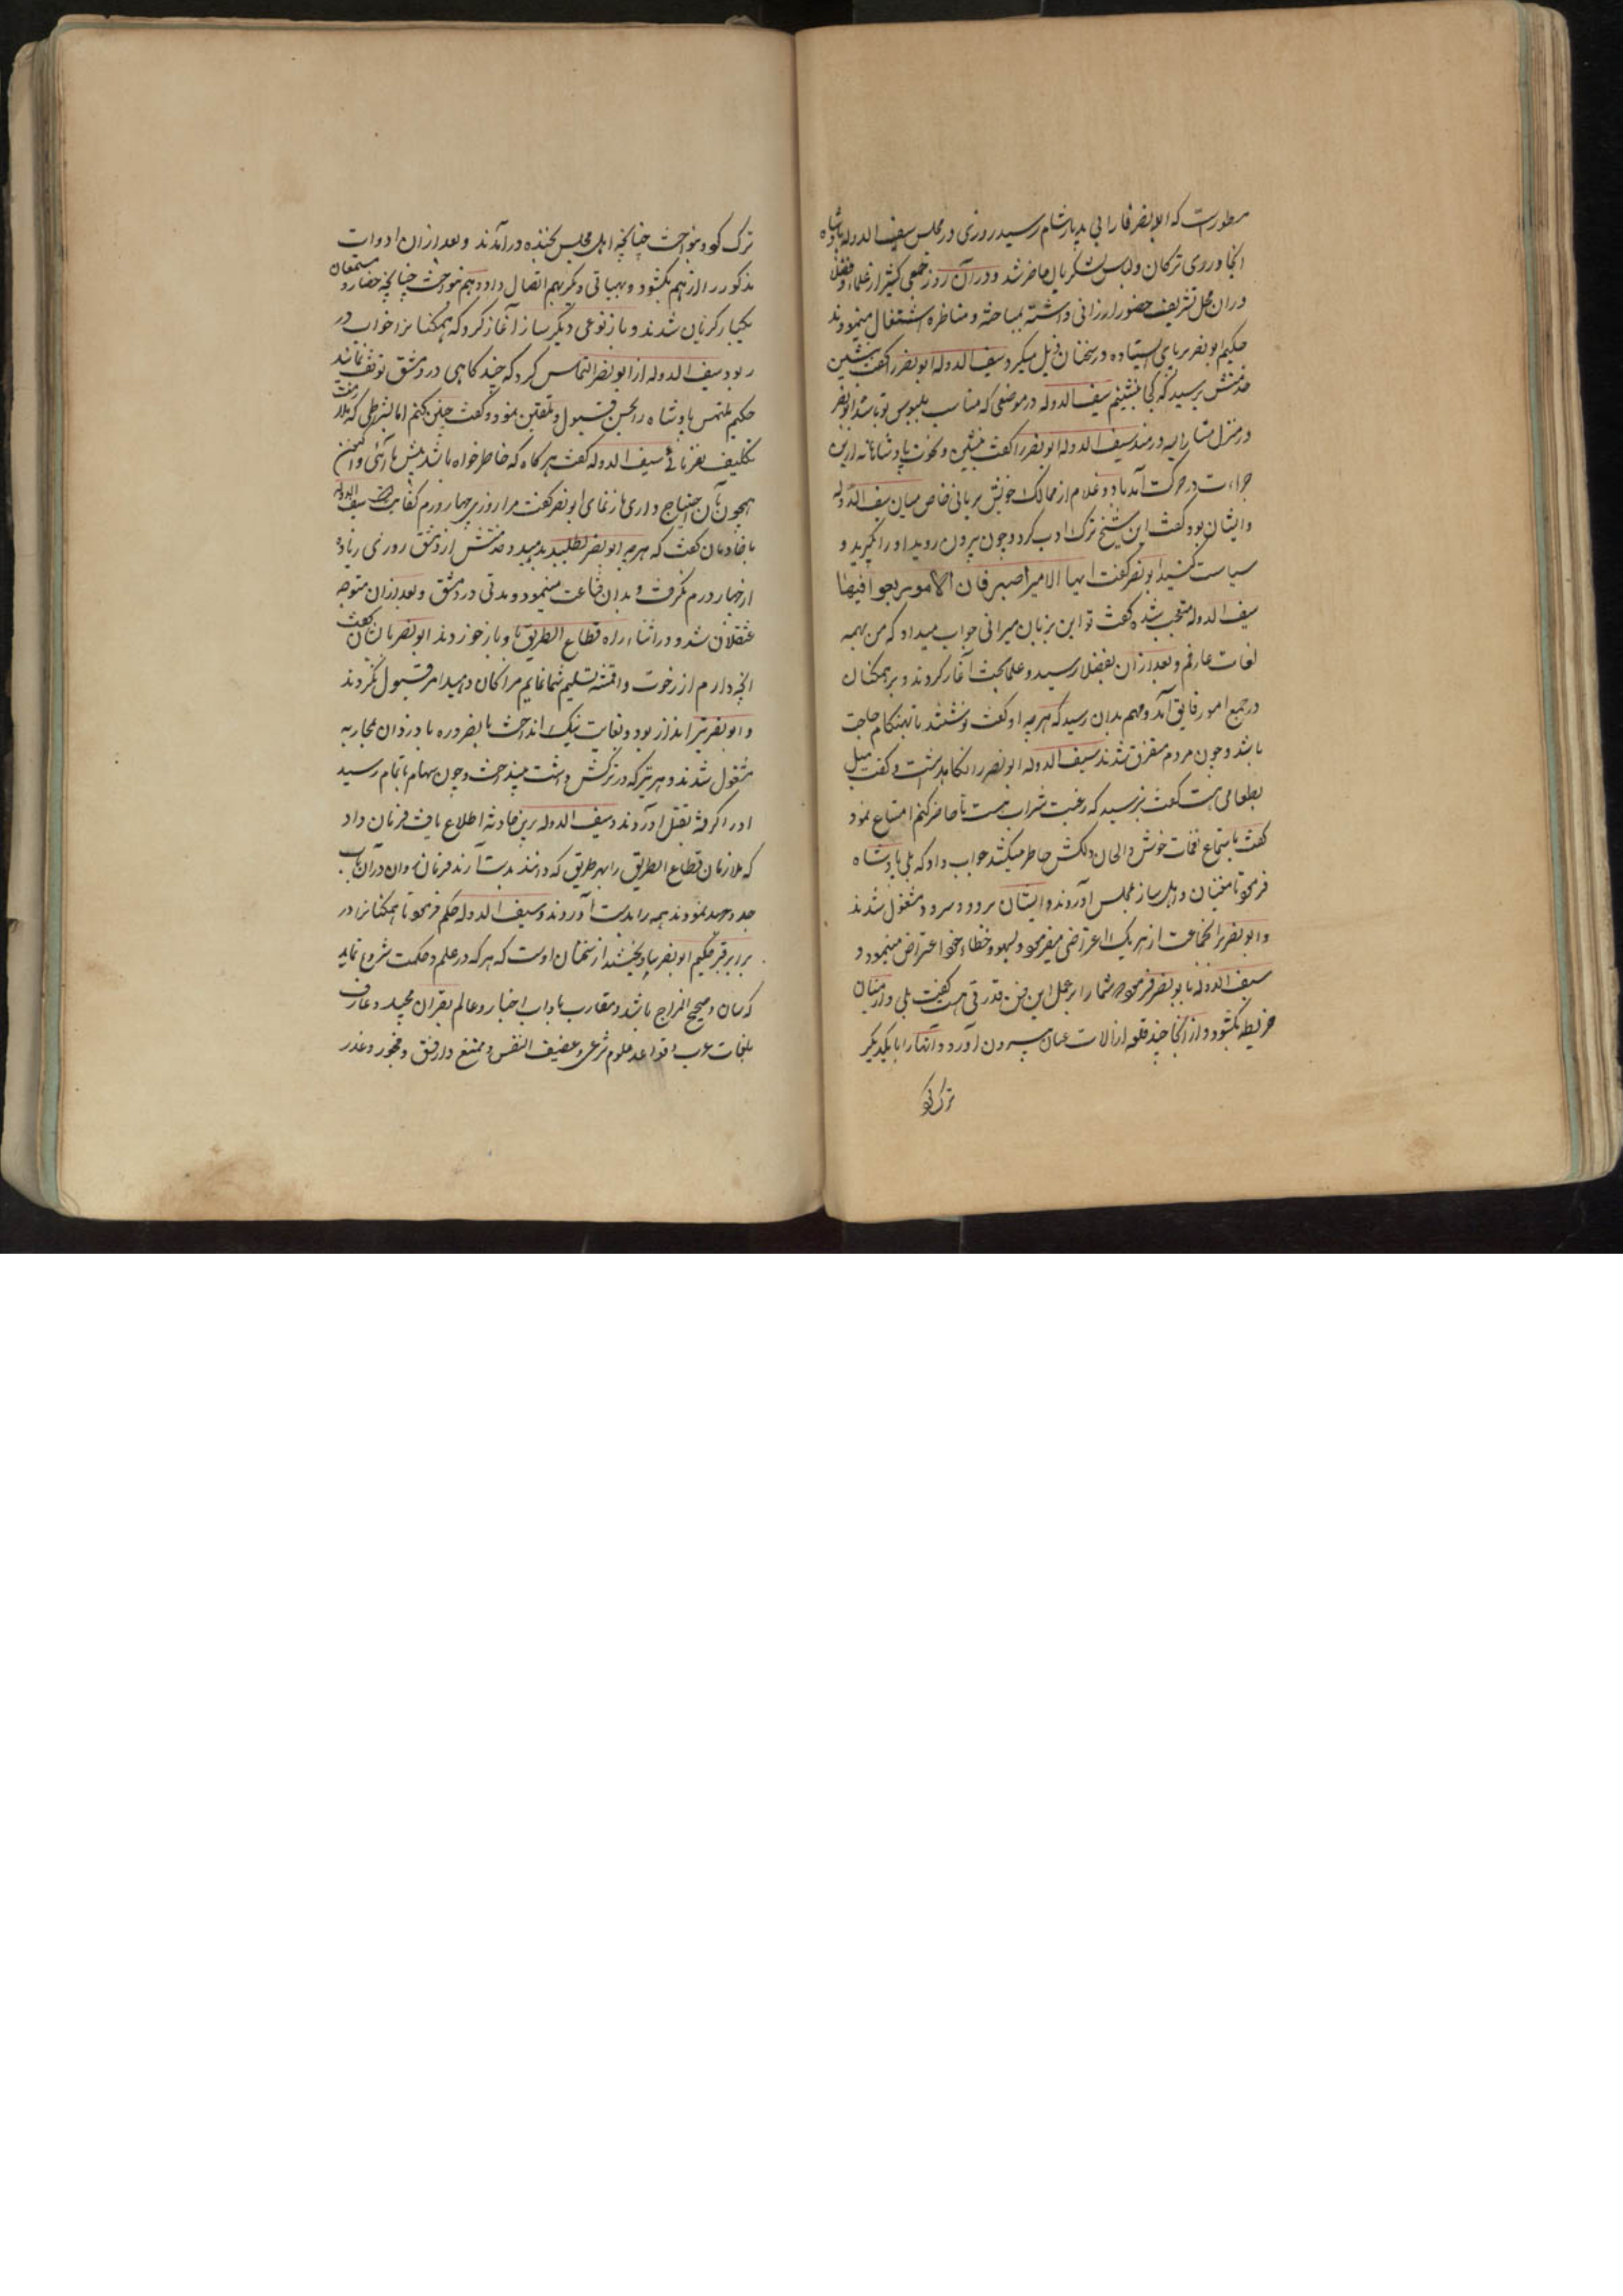 مسطورست که ابو نصر فارابی بدیار شام رسید روزی در مجلس سیف الدوله پادشاه
آنجا در زی ترکان و لباس لشکریان حاضر شد و در آن روز جمعی کثیر از علما و فضلا
در ان محل تشریف حضور ارزانی داشته بمباحثه و مناظره اشتغال مینمودند
حکیم ابو نصر بر پای ایستاده در سخنان دخل میکرد سیف الدوله ابو نصر را گفت بنشین
خدمتش پرسید که کجا بنشینم سیف الدوله در موضعی که مناسب ملبوس تو باشد ابو نصر
در منزل مشار الیه در مسند سیف الدوله ابو نصر را گفت بنشین و نخوت پادشاهانه ازین
جراءت در حرکت آمد با دو غلام از ممالک خویش بزبانی خاص میان سیف الدوله
و ایشان بود گفت این شیخ ترک ادب کرد و چون بیرون روید او را بگیرید و
سیاست کنید ابو نصر گفت ایها الامیر اصبر فان الامور بعواقبها
سیف الدوله متعجب شده گفت تو این زبان میدانی جواب میداد که من بهمه
لغات عارفم و بعد از آن بفضلا رسید و علما بحث آغاز کردند و بر همکنان
در جمیع امور فایق آمد و مهم بدان رسید که هر چه او گفت نوشتند تا بهنکام حاجت
باشد و چون مردم متفرق شدند سیف الدوله ابو نصر را نگاهداشت و گفت میل
بطعامی هست گفت نی پرسید که رغبت شراب هست تا حاضر کنم امتناع نمود
گفت باستماع نغمات خوش و الحان دلکش خاطر میکشد جواب داد که بلی پادشاه
فرمود تا مغنیان و اهل ساز مجلس آوردند و ایشان برود و سرود مشغول شدند
و ابو نصر بر انجماعت از هر یک اعتراضی میفرمود و بسهو و خطا خود اعتراض مینمود و
سیف الدوله با بو نصر فرمود شما را بر عمل این فن قدرتی هست گفت بلی و از میان
خریطه بکشود و از آنجا چند قطعه از الات عیدان بیرون آورد و آنها را با یکدیگر
ترک کو
ترک کرد و بنواخت چنانچه اهل مجلس بخنده در آمدند و بعد از ان ادوات
مذکور را از هم بکشود و بهیاتی دیگر بهم اتصال داده بهم بنواخت چنانچه حضار و مستمعان
یکبار گریان شدند و باز نوعی دیگر ساز آغاز کرد که همکنانرا خواب در
ربود سیف الدوله از ابو نصر التماس کرد که چند کاهی در دمشق توقف نمایند
حکیم ملتمس پادشاه را بحسن قبول تلقین نمود و گفت چنین کنم اما بشرطی که ملازمت
تکلیف نفرمائی سیف الدوله گفت هر کاه که خاطر خواه باشد پیش ما آئی و همچنین
بهچون بآن احتیاج داری باز نمای ابو نصر گفت مرا روزی چهار درم کفایت سیف الدوله
با خادمان گفت که هر چه ابو نصر بطلبد بدهید و خدمتش از دمشق روزی زیاده
از چهار درم نگرفت و بدان قناعت مینمود و مدتی در دمشق و بعد از ان متوجه
عسقلان شد و در اثناء راه قطاع الطریق با و باز خوردند ابو نصر با ایشان گفت
انچه دارم از رخوت و اقمشه تسلیم شما نمایم مرا امان دهید امر قبول نکردند
و ابو نصر تیر انداز بود و بغایت نیک انداخت بالضروره با دزدان بمحاربه
مشغول شدند و هر تیر که در ترکش داشت بینداخت و چون سهام باتمام رسید
او را گرفته بقتل آوردند و سیف الدوله برین حادثه اطلاع یافت فرمان داد
که ملازمان قطاع الطریق را بهر طریق که دانند بدست آرند فرمان بران در آن باب
جد و جهد نمودند همه را بدست آوردند و سیف الدوله حکم فرمود تا همکنانرا در
برابر قبر حکیم ابو نصر بیاویختند از سخنان اوست که هر که در علم و حکمت شروع نماید
که سان و صحیح المزاج باشد و متقارب باداب اخیار و عالم بقران مجید و عارف
بلغات عرب و قواعد علوم شرعی و عفیف النفس و ممتنع دار فسق و فجور و غدر